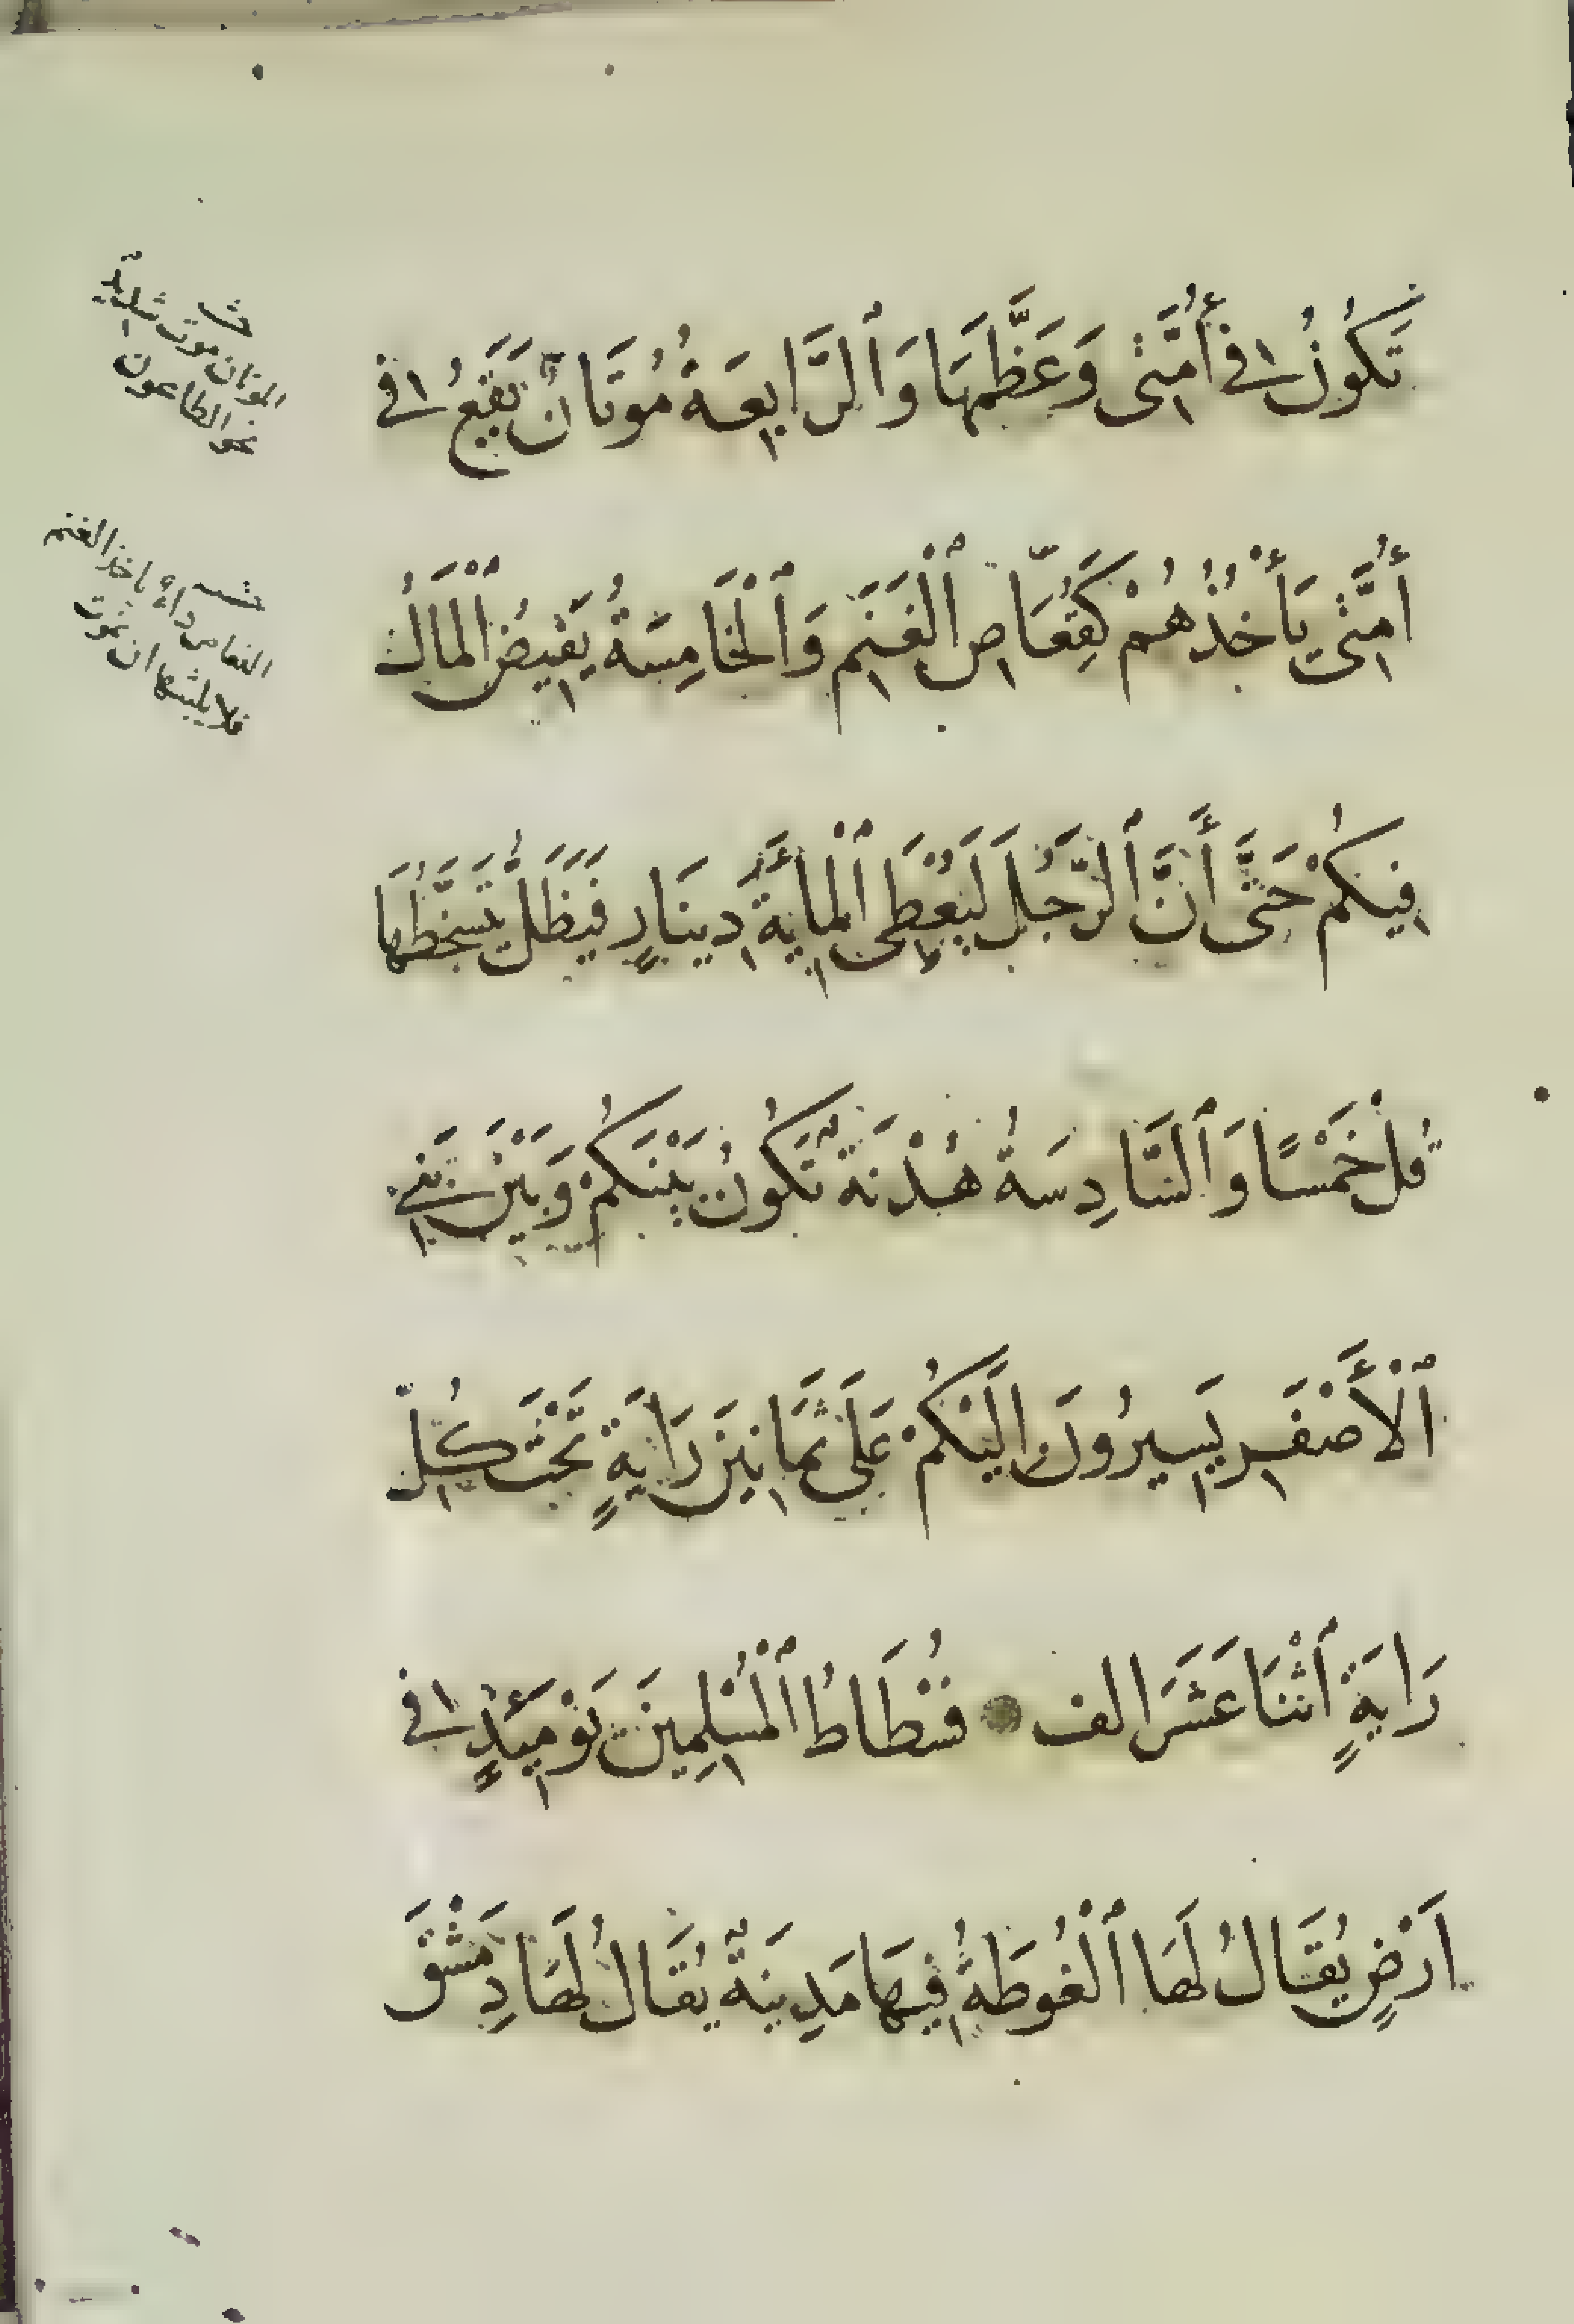 تَكُونُ فِي أُمَّتِي وَعَظَّمَهَا وَٱلرَّابِعَةُ مُوتَانٌ يَقَعُ فِي
أُمَّتِي يَأْخُذُهُمْ كَقُعَاصِ ٱلْغَنَمِ وَٱلْخَامِسَةُ يَفِيضُ ٱلْمَالُ
فِيكُمْ حَتَّى أَنَّ ٱلرَّجُلَ لَيُعْطَى ٱلْمِأيَةَ دِينَارٍ فَيَظَلُّ يَتَسَخَّطُهَا
قُلْ خَمْسًا وَٱلسَّادِسَةُ هُدْنَةٌ تَكُونُ بَيْنَكُمْ وَبَيْنَ بَنِي
ٱلْأَصْفَرِ يَسِيرُونَ اِلَيْكُمْ عَلَى ثَمَانِينَ رَايَةٍ تَحْتَ كُلِّ
رَايَةٍ ٱثْنَا عَشَرَ الف فُسْطَاطُ ٱلْمُسْلِمِينَ يَوْمَئِذٍ فِي
اَرْضٍ يُقَالُ لَهَا ٱلْغُوطَةُ فِيهَا مَدِينَةٌ يُقَالُ لَهَا دِمَشْقَ
الموتان موت شديد
نحو الطاعون
القعاص داء ياخذ الغنم
فلا يلبثها ان تموت